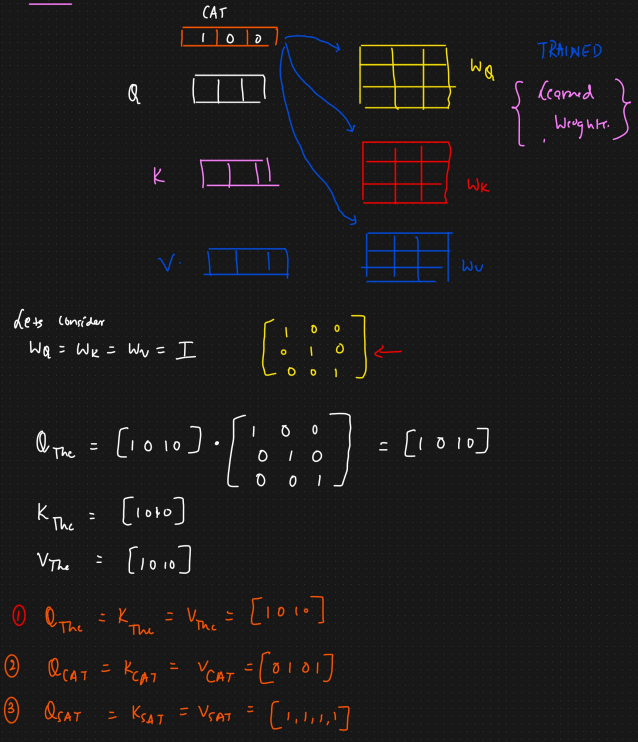 CAT
1 0 0
TRAINED
Q
WQ
learned
weights.
K
WK
V
WV
Lets consider
WQ = WK = WV = I
1 0 0
0 1 0
0 0 1
QThe = [1 0 1 0] . [1 0 0 = [1 0 1 0]
0 1 0
0 0 1]
KThe = [1 0 1 0]
VThe = [1 0 1 0]
① QThe = KThe = VThe = [1 0 1 0]
② QCAT = KCAT = VCAT = [0 1 0 1]
③ QSAT = KSAT = VSAT = [1, 1, 1, 1]